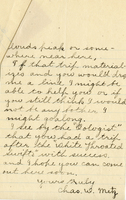 clouds peak or some-
where near here,
If that trip material-
izes and you would drop
me a line I might be
able to help you or if
you still think I would
not be any bother I
might go along.
I see by the Oologist"
that you had a trip
after the White throated
Swifts with success.
and I hope you can come
out here soon.
Yours Truly
Chas. W. Metz